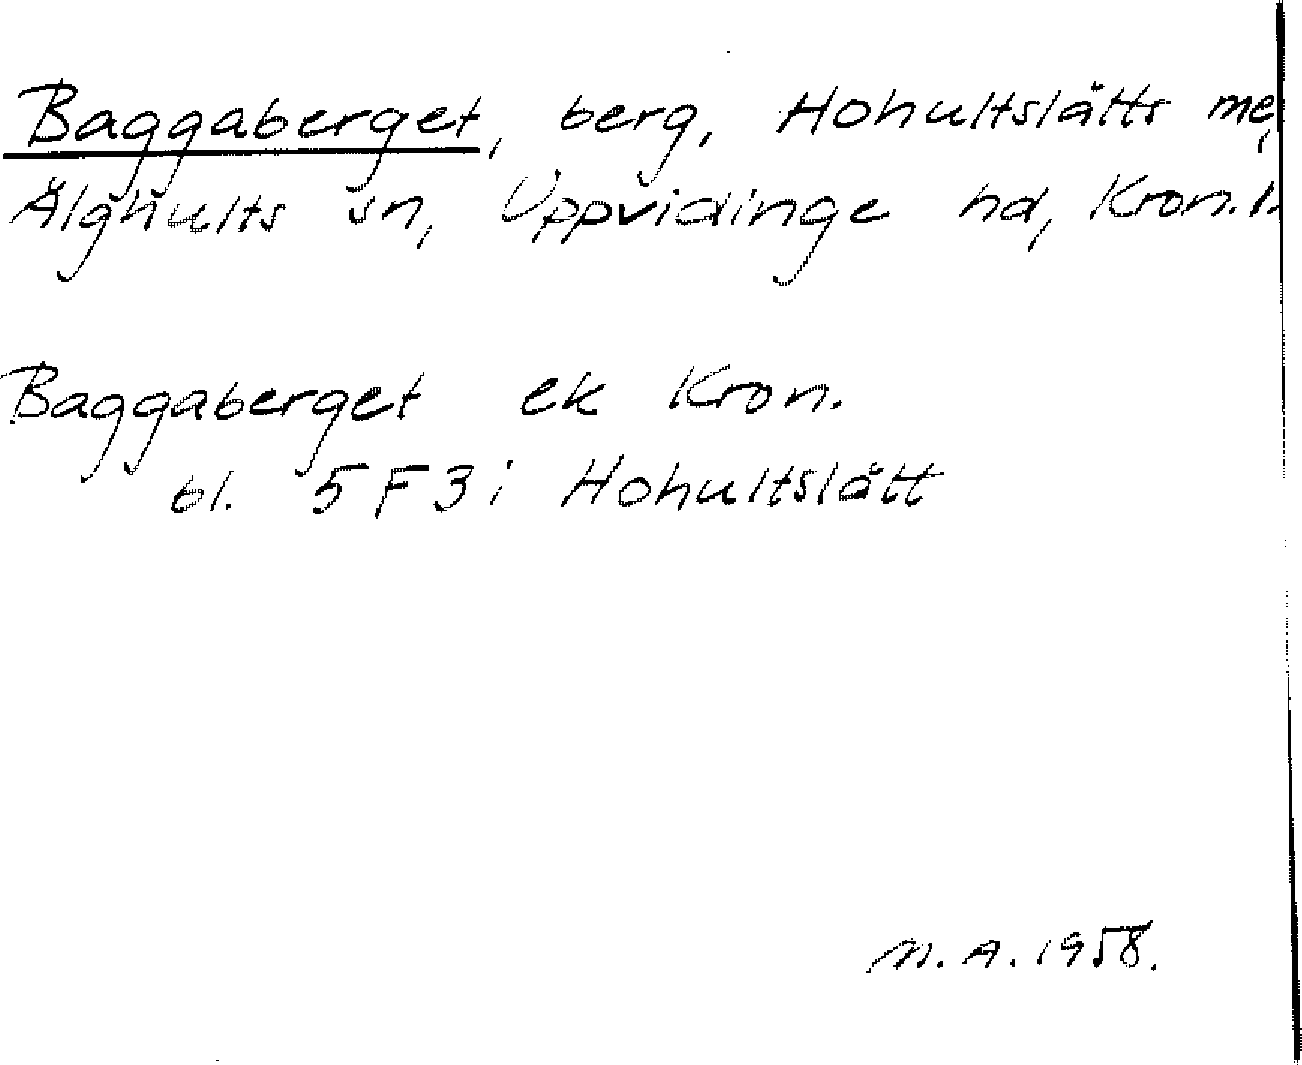 Baggaberget, berg, Hohultslätts me,
Älghults sn, Uppvidinge hd, Kron.l.
Baggaberget ek Kron.
bl. 5F3i Hohultslätt
M.A. 1958.